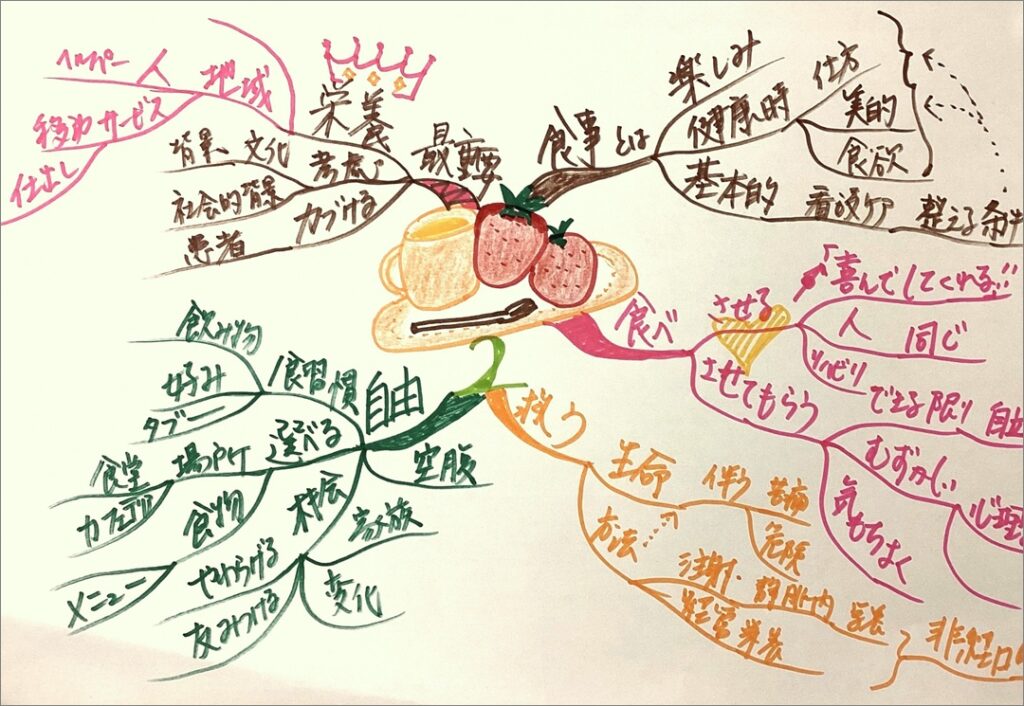 ヘルパー 人
地域
移動 サービス
仕出し
栄養
最重要
背景、文化
考慮
社会的背景
力づける
患者
食事とは
楽しみ
健康時
仕方
美的
食欲
基本的
看護ケア
整える条件
食べ
させる
「喜んでしてくれる!!
人 同じ
リハビリ
できる限り
させてもらう
むずかしい
気もちよく
救う
生命
伴う 苦痛
危険
方法
注射・静脈内
栄養
経管栄養
自由
食習慣
飲み物
好み
タブー
選べる
場所
食堂
カフェテリア
食物
メニュー
機会
やわらげる
変化
空腹
家族